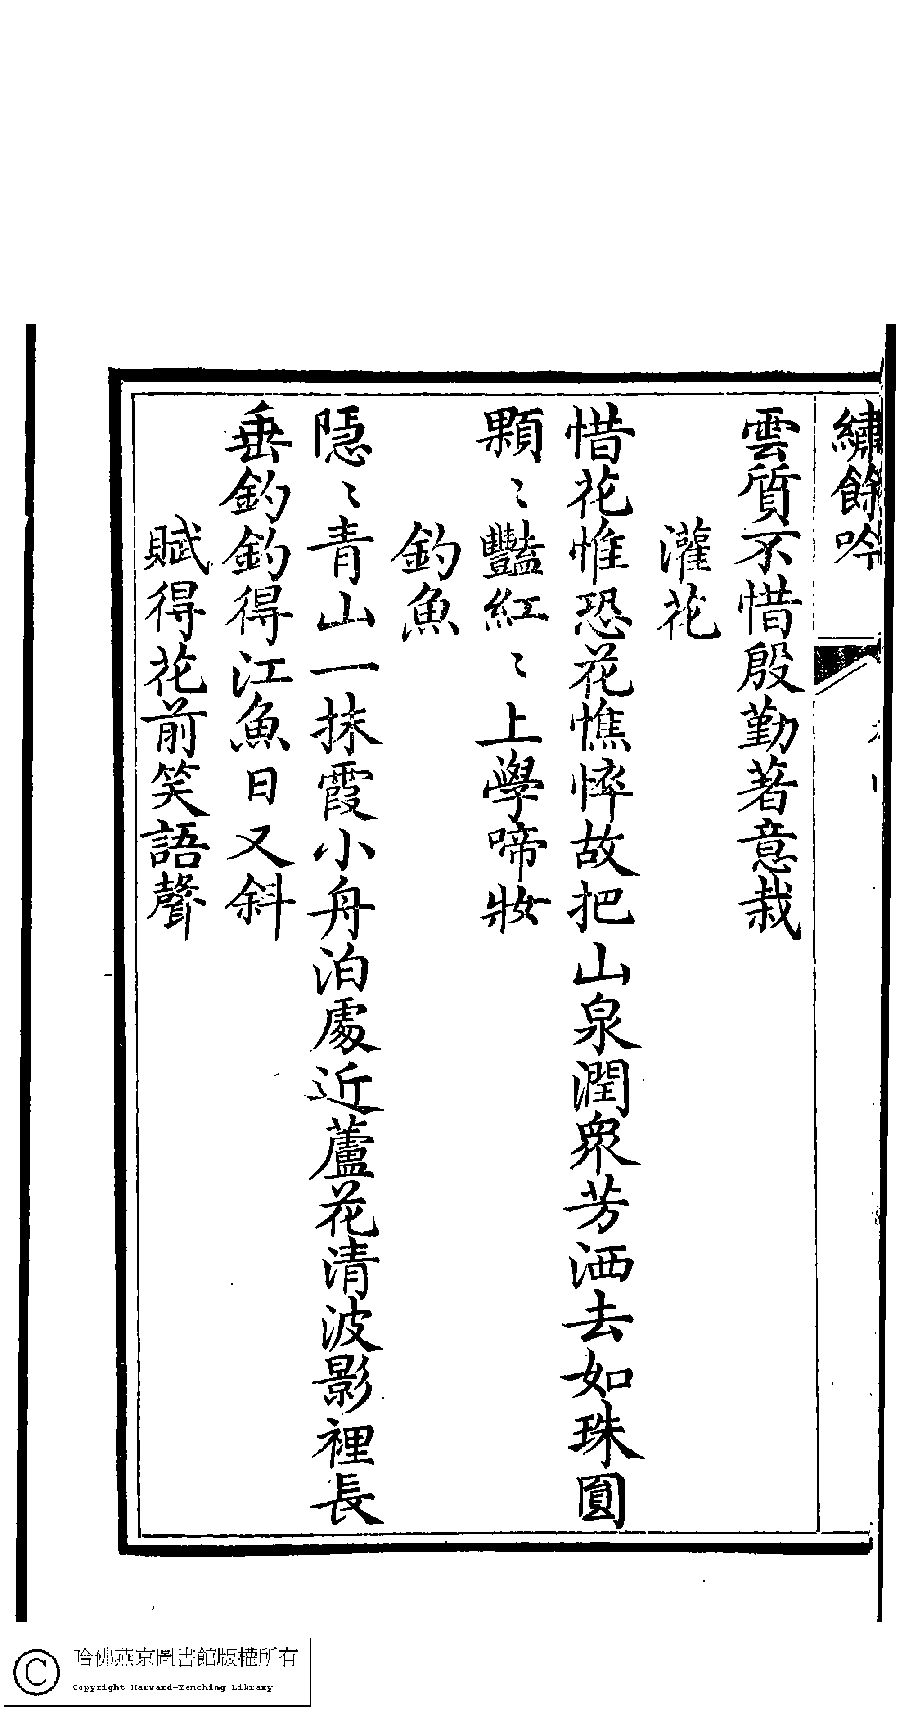 繡餘吟
雲質不惜殷勤著意栽
灌花
惜花惟恐花憔悴故把山泉潤衆芳洒去如珠圓
顆〻豔紅〻上學啼妝
釣魚
隱〻青山一抹霞小舟泊處近蘆花清波影裡長
垂釣釣得江魚日又斜
賦得花前笑語聲
哈佛燕京圖書館版權所有
Copyright Harvard-Yenching Library